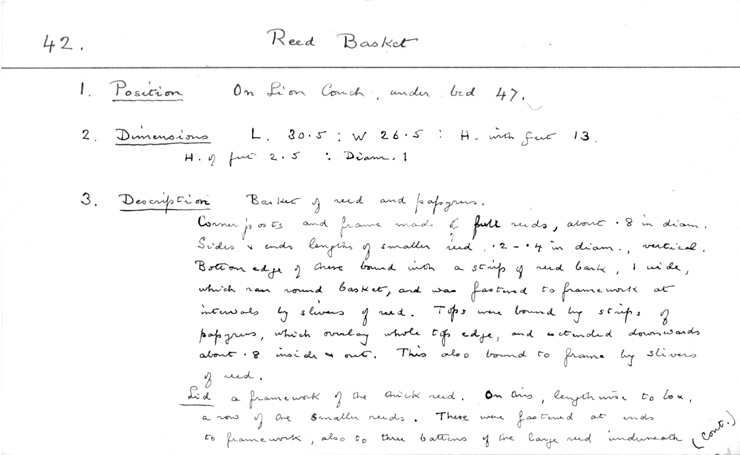 42. Reed Basket
1. Position On Lion Couch, under bed 47.
2. Dimensions L. 30.5 : W 26.5 : H. with feet 13.
H. of feet 2.5 : Diam. 1
3. Description Basket of reed and papyrus.
Corner posts and frame made of full reeds, about .8 in diam.
Sides & ends lengths of smaller reed, .2 - .4 in diam., vertical.
Bottom edge of these bound with a strip of reed bark, 1 wide,
which ran round basket, and was fastened to framework at
intervals by slivers of reed. Tops were bound by strips of
papyrus, which overlay whole top edge, and extended downwards
about .8 inside & out. This also bound to frame by slivers
of reed.
Lid a framework of the thick reed. On this, lengthwise to box,
a row of the smaller reeds. These were fastened at ends
to framework, also to three battens of the large reed underneath (cont.)